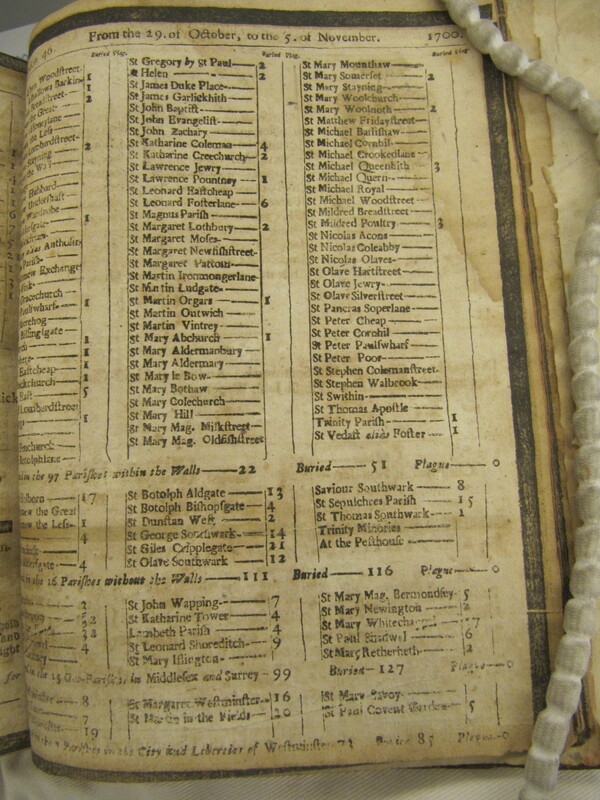 From the 29. of October, to the 5. of November. 1700.
Buried Plag.
Buried Plag.
Buried Plag.
Woodstreet.
Barkin 1
1
2
Lombardstreet
2
1
Exchange
Gracechurch
1
Billingsgate
1
Eastcheap 1
1
5
Lombardstreet
1
St Gregory by St Paul 2
St Helen 2
St James Duke Place
St James Garlickhith
St John Baptist
St John Evangelist
St John Zachary
St Katharine Coleman 4
St Katharine Creechurch 2
St Lawrence Jewry
St Lawrence Pountney 1
St Leonard Eastcheap
St Leonard Fosterlane 6
St Magnus Parish
St Margaret Lothbury 2
St Margaret Moses
St Margaret Newfishstreet
St Margaret Pattons
St Martin Ironmongerlane
St Martin Ludgate
St Martin Orgars 1
St Martin Outwich
St Martin Vintrey
St Mary Abchurch 1
St Mary Aldermanbury
St Mary Aldermary
St Mary le Bow
St Mary Bothaw
St Mary Colechurch
St Mary Hill
St Mary Mag. Milkstreet
St Mary Mag. Oldfishstreet
St Mary Mounthaw
St Mary Somerset 2
St Mary Stayning
St Mary Woolchurch
St Mary Woolnoth 2
St Matthew Fridaystreet
St Michael Bassishaw
St Michael Cornhil
St Michael Crookedlane
St Michael Queenhith 3
St Michael Quern
St Michael Royal
St Michael Woodstreet
St Mildred Breadstreet
St Mildred Poultry 3
St Nicolas Acons
St Nicolas Coleabby
St Nicolas Olaves
St Olave Hartstreet
St Olave Jewry
St Olave Silverstreet
St Pancras Soperlane
St Peter Cheap
St Peter Cornhil
St Peter Paulswharf
St Peter Poor
St Stephen Colemanstreet
St Stephen Walbrook
St Swithin
St Thomas Apostle
Trinity Parish 1
St Vedast alias Foster 1
in the 97 Parishes within the Walls 22 Buried 51 Plague 0
17
the Great
the Less 1
4
4
St Botolph Aldgate 13
St Botolph Bishopsgate 4
St Dunstan West 2
St George Southwark 14
St Giles Cripplegate 21
St Olave Southwark 12
Saviour Southwark 8
St Sepulchres Parish 15
St Thomas Southwark 1
Trinity Minories
At the Pesthouse
in the 16 Parishes without the Walls 111 Buried 116 Plague 0
2
32
32
4
St John Wapping 7
St Katharine Tower 4
Lambeth Parish 4
St Leonard Shoreditch 9
St Mary Islington
St Mary Mag. Bermondsey 5
St Mary Newington 2
St Mary Whitechappel 7
St Paul Shadwel 6
St Mary Retherheth 2
in the 15 Out-Parishes in Middlesex and Surrey 99 Buried 127 Plague 0
8
7
19
St Margaret Westminster 16
St Martin in the Fields 20
St Mary Savoy
St Paul Covent Garden 5
Parishes in the City and Liberties of Westminster 73 Buried 85 Plague 0